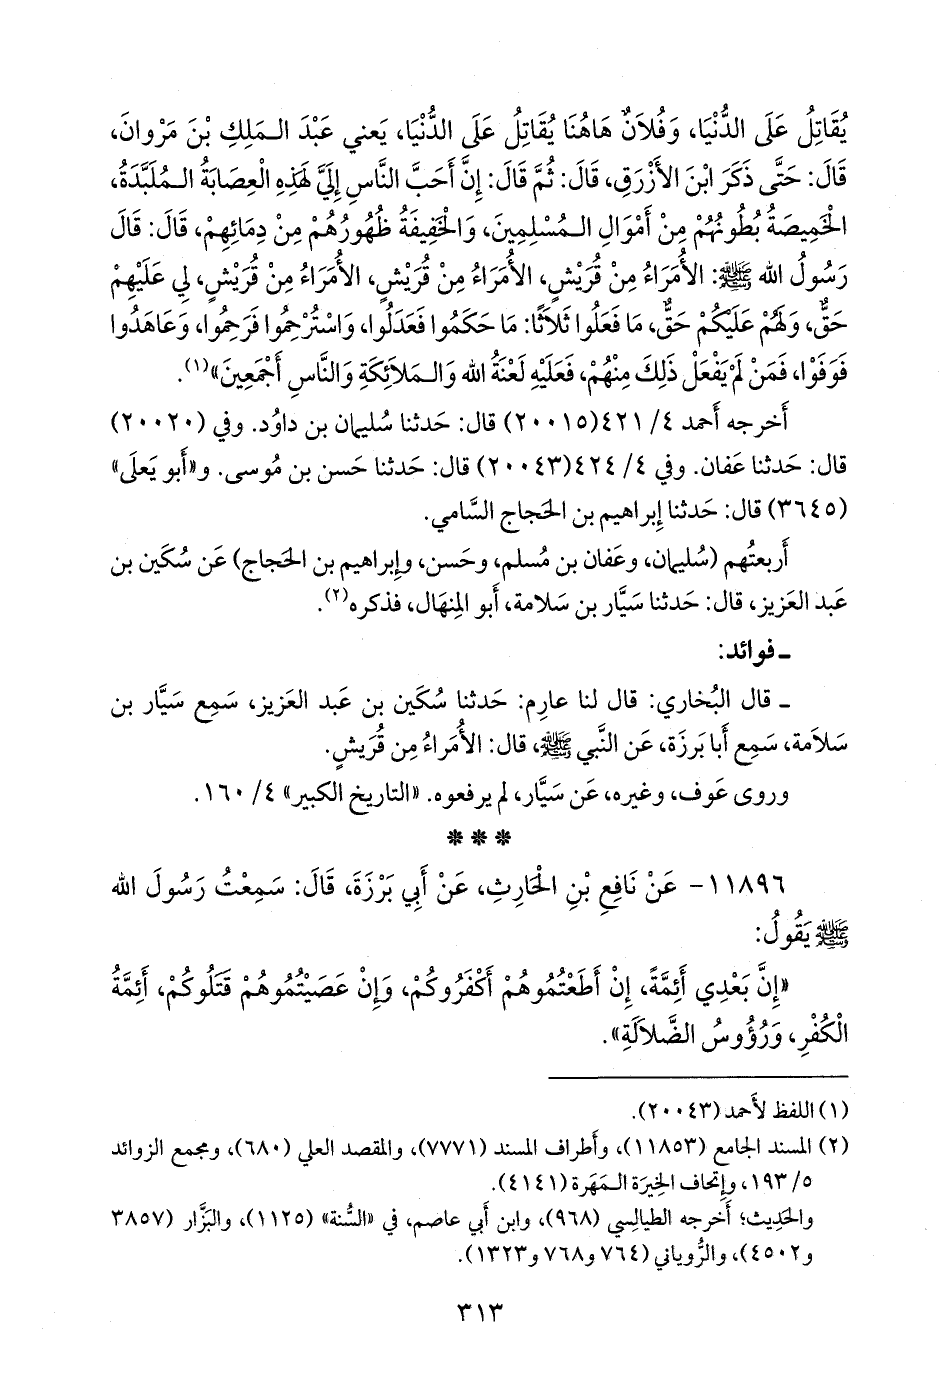 يُقَاتِلُ عَلَى الدُّنْيَا، وَفُلاَنٌ هَاهُنَا يُقَاتِلُ عَلَى الدُّنْيَا، يَعني عَبْدَ الـمَلِكِ بْنَ مَرْوانَ،
قَالَ: حَتَّى ذَكَرَ ابْنَ الأَزْرَقِ، قَالَ: ثُمَّ قَالَ: إِنَّ أَحَبَّ النَّاسِ إِلَيَّ لَهَذِهِ الْعِصَابَةُ الـمُلَبَّدَةُ،
الْخَمِيصَةُ بُطُونُهُمْ مِنْ أَمْوَالِ الـمُسْلِمِينَ، وَالْخَفِيفَةُ ظُهُورُهُمْ مِنْ دِمَائِهِمْ، قَالَ: قَالَ
رَسُولُ الله ﷺ: الأُمَرَاءُ مِنْ قُرَيْشٍ، الأُمَرَاءُ مِنْ قُرَيْشٍ، الأُمَرَاءُ مِنْ قُرَيْشٍ، لِي عَلَيْهِمْ
حَقٌّ، وَلَهُمْ عَلَيْكُمْ حَقٌّ، مَا فَعَلُوا ثَلاَثًا: مَا حَكَمُوا فَعَدَلُوا، وَاسْتُرْحِمُوا فَرَحِمُوا، وَعَاهَدُوا
فَوَفَوْا، فَمَنْ لَمْ يَفْعَلْ ذَلِكَ مِنْهُمْ، فَعَلَيْهِ لَعْنَةُ الله وَالـمَلاَئِكَةِ وَالنَّاسِ أَجْمَعِينَ»(١).
أَخرجه أَحمد ٤/ ٤٢١(٢٠٠١٥) قال: حَدثنا سُليمان بن داوُد. وفي (٢٠٠٢٠)
قال: حَدثنا عَفان. وفي ٤/ ٤٢٤(٢٠٠٤٣) قال: حَدثنا حَسن بن مُوسى. و«أَبو يَعلَى»
(٣٦٤٥) قال: حَدثنا إِبراهيم بن الحَجاج السَّامي.
أَربعتُهم (سُليمان، وعَفان بن مُسلم، وحَسن، وإِبراهيم بن الحَجاج) عَن سُكَين بن
عَبد العَزيز، قال: حَدثنا سَيَّار بن سَلامة، أَبو المِنهَال، فذكره(٢).
ـ فوائد:
ـ قال البُخاري: قال لنا عارِم: حَدثنا سُكَين بن عَبد العَزيز، سَمِع سَيَّار بن
سَلاَمة، سَمِع أَبا بَرزَة، عَن النَّبي ﷺ، قال: الأُمَراءُ مِن قُرَيشٍ.
وروى عَوف، وغيره، عَن سَيَّار، لم يرفعوه. «التاريخ الكبير» ٤/ ١٦٠.
* * *
١١٨٩٦- عَنْ نَافِعِ بْنِ الْحَارِثِ، عَنْ أَبِي بَرْزَةَ، قَالَ: سَمِعْتُ رَسُولَ الله
ﷺ يَقُولُ:
«إِنَّ بَعْدِي أَئِمَّةً، إِنْ أَطَعْتُمُوهُمْ أَكْفَرُوكُمْ، وَإِنْ عَصَيْتُمُوهُمْ قَتَلُوكُمْ، أَئِمَّةُ
الْكُفْرِ، وَرُؤُوسُ الضَّلاَلَةِ».
(١) اللفظ لأَحمد (٢٠٠٤٣).
(٢) المسند الجامع (١١٨٥٣)، وأَطراف المسند (٧٧٧١)، والمقصد العلي (٦٨٠)، ومجمع الزوائد
٥/ ١٩٣، وإِتحاف الخِيرَة الـمَهَرة (٤١٤١).
والحَدِيث؛ أَخرجه الطيالِسي (٩٦٨)، وابن أَبي عاصم، في «السُّنة» (١١٢٥)، والبَزَّار (٣٨٥٧
و٤٥٠٢)، والرُّوياني (٧٦٤ و٧٦٨ و١٣٢٣).
٣١٣